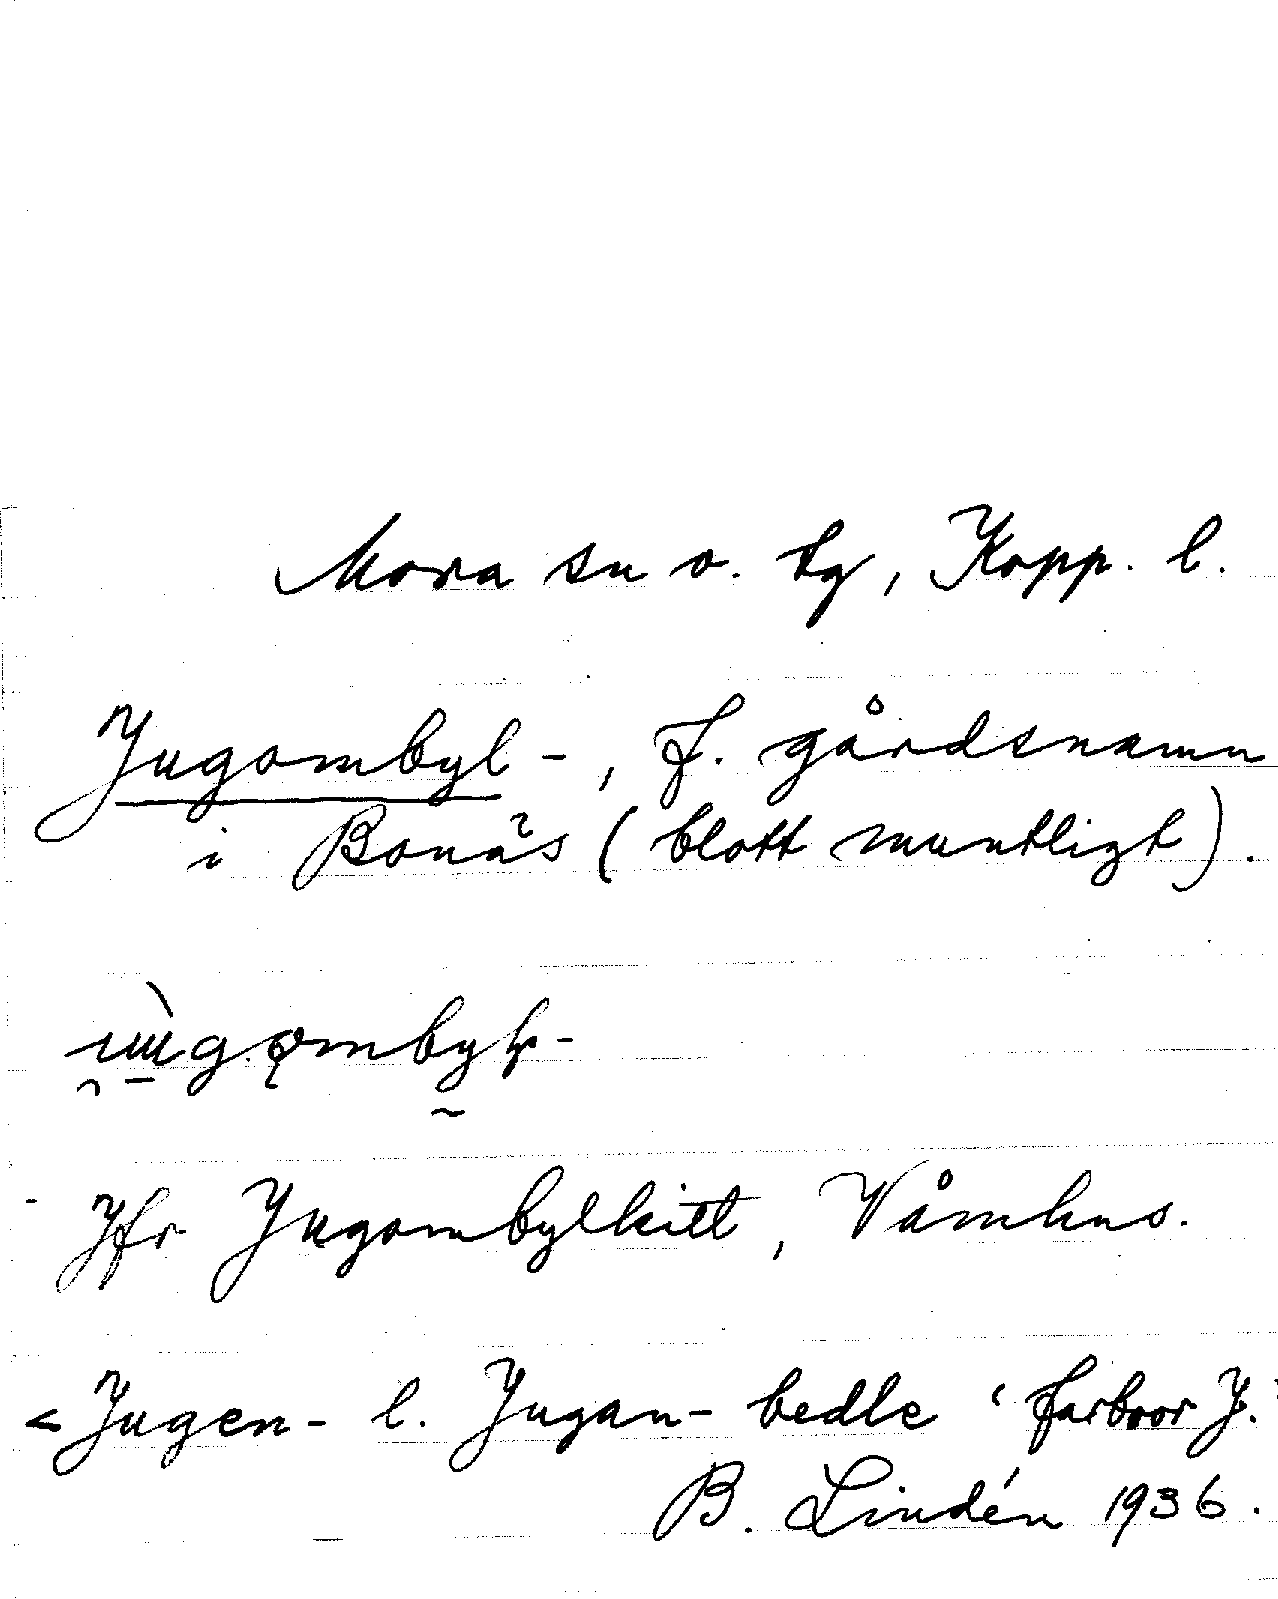 Mora sn o. tg, Kopp. l.
Jugombyl-, f. gårdsnamn
i Bonäs (blott muntligt).
Jfr Jugombylkitt, Våmhus.
< Jugen- l. Jugan- bedle ‘farbror J.’
B. Lindén 1936.